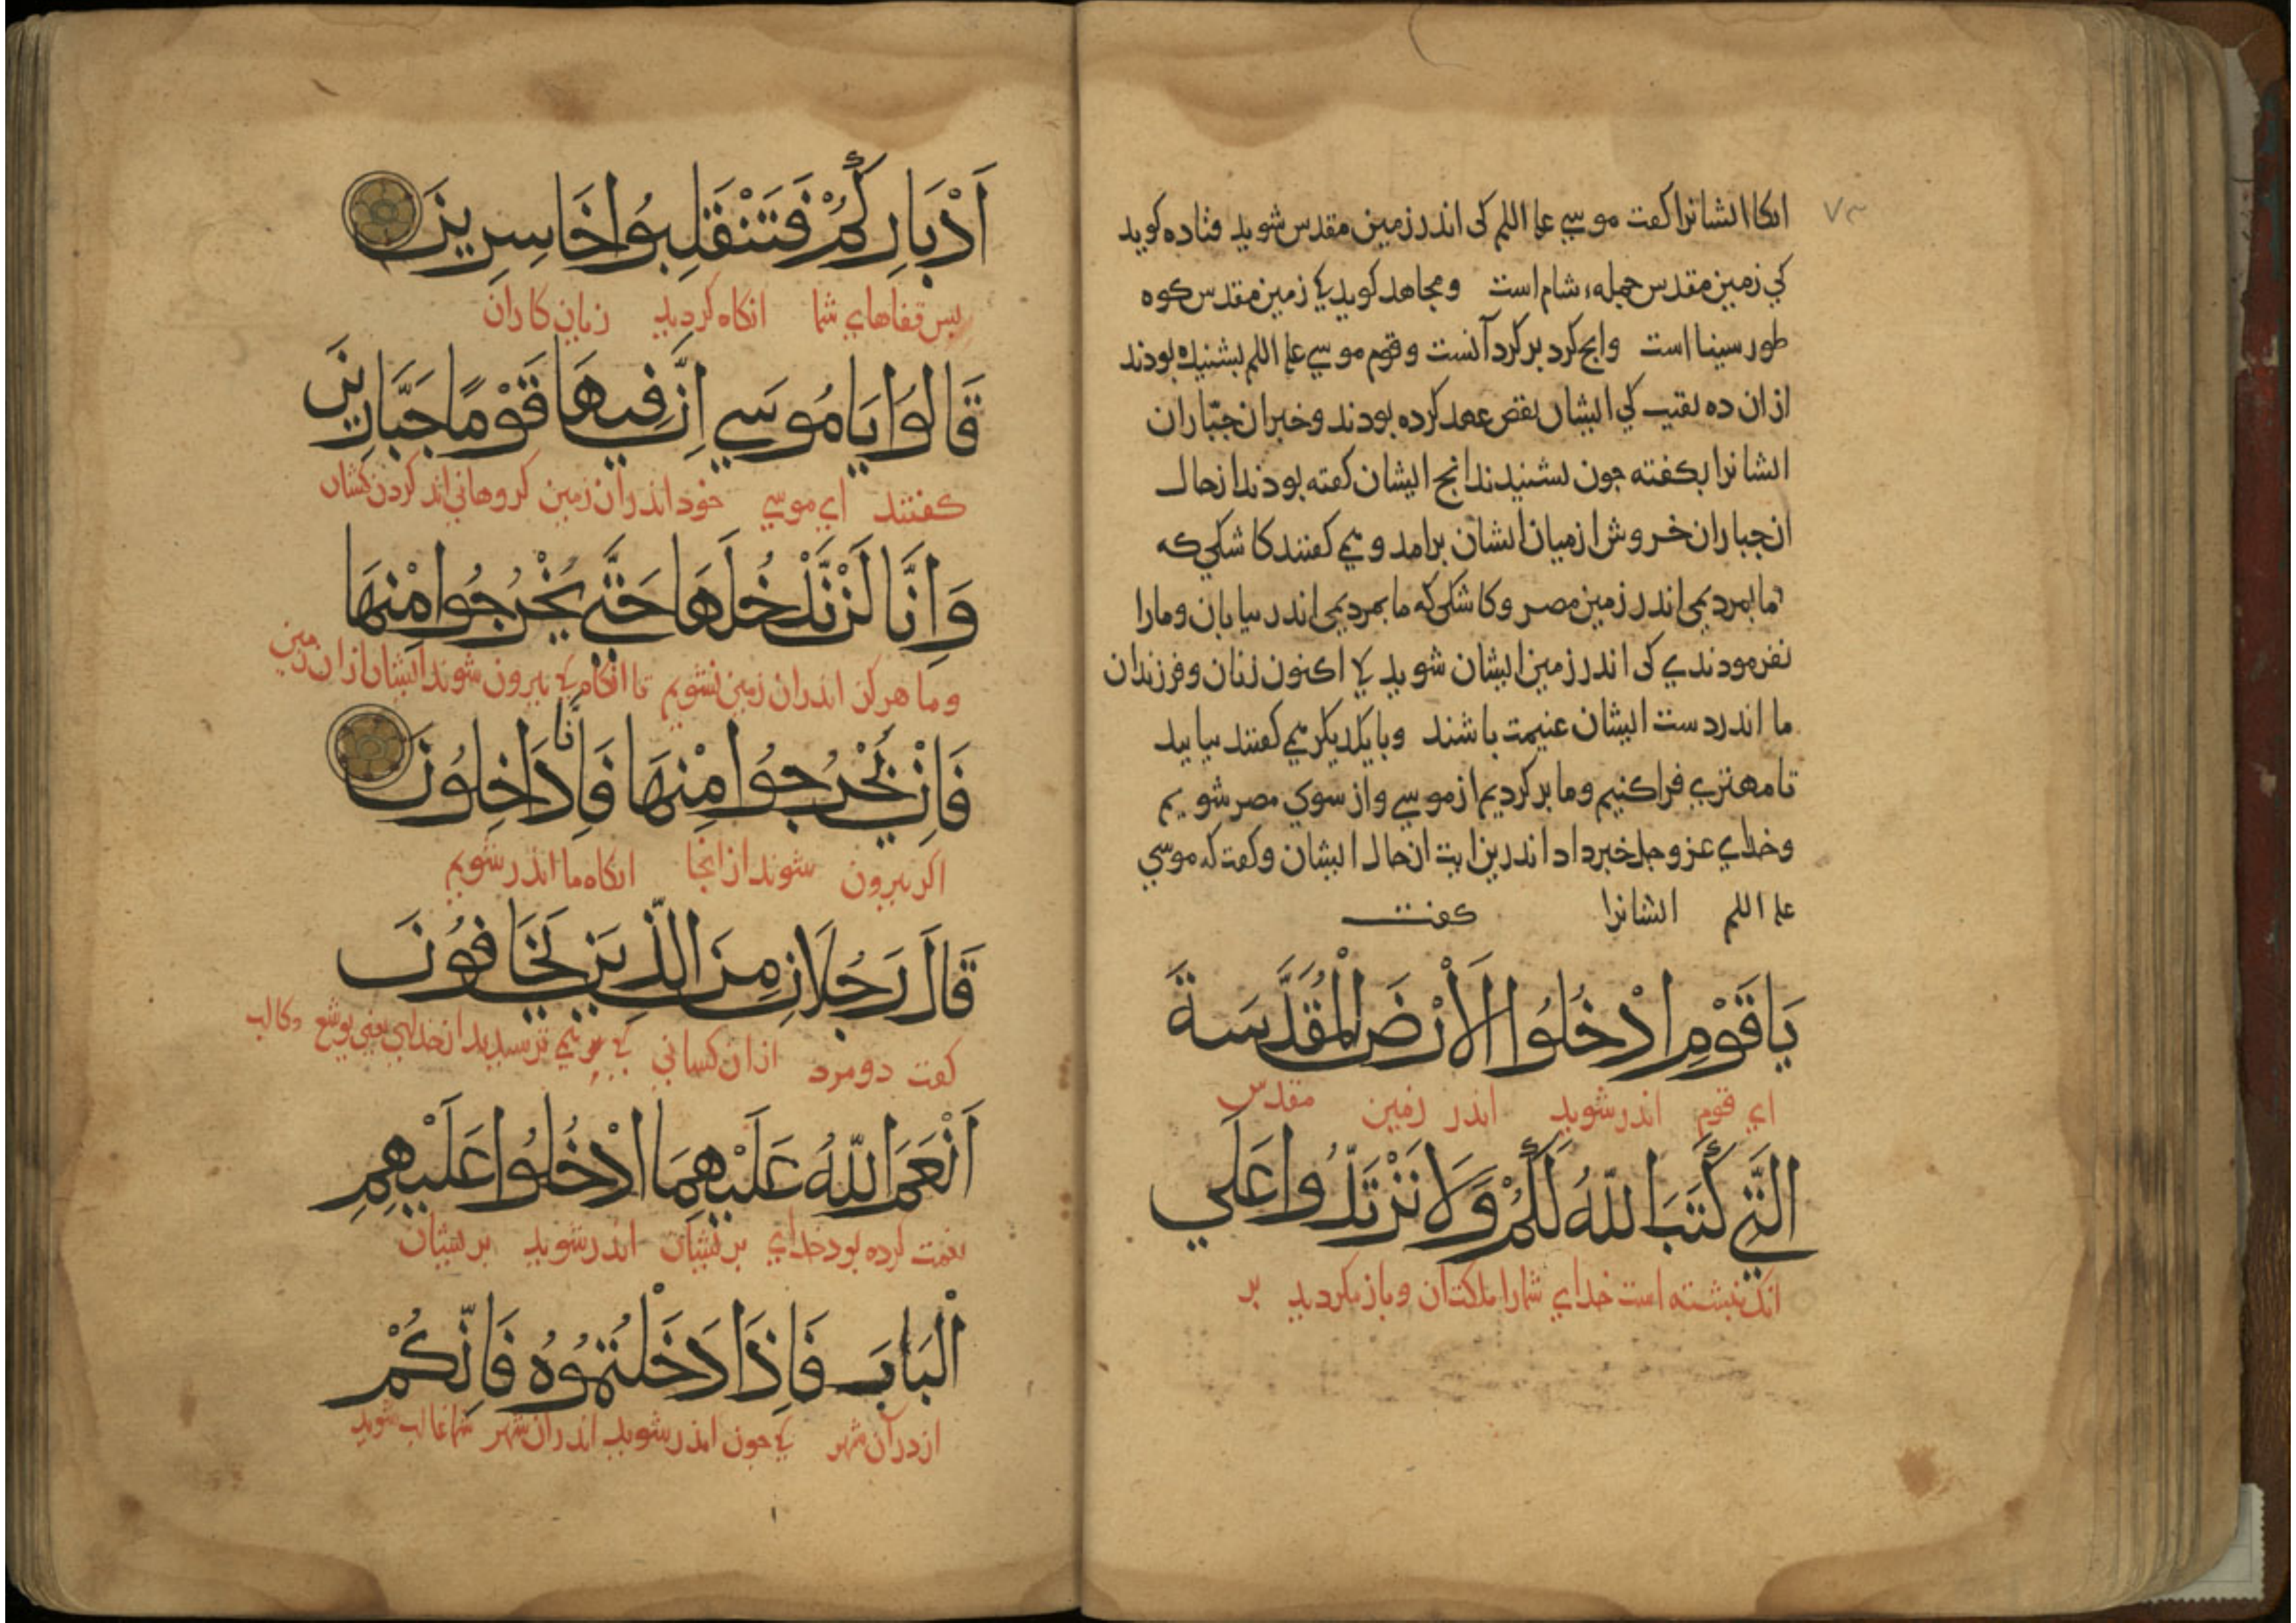 ٧٣
انکاا ایشانرا کفت موسي علیه السلم کی اندر زمین مقدس شوید قتاده کوید
کي زمین مقدس جمله شام است ومجاهد کوید کي زمین مقدس کوه
طور سینا است وانج کرد بر کرد آنست وقوم موسي علیه السلم بشنیده بودند
از ان ده نقیب کي ایشان نقض عهد کرده بودند وخبر ان جبّاران
ایشانرا بکفته جون بشنیدند انج ایشان کفته بودند از حال
ان جباران خروش از میان ایشان برامد ومي کفتند کاشکي که
ما بمردیمي اندر زمین مصر وکاشکي که ما بمردیمي اندر بیابان ومارا
نفرمودندي کی اندر زمین ایشان شوید کي اکنون زنان وفرزندان
ما اندر دست ایشان غنیمت باشند وبا یکدیکر مي کفتند بیایید
تا مهتري فرا کنیم وما بر کردیم از موسي واز سوي مصر شویم
وخداي عز وجل خبر داد اندرین ایت ان حال ایشان وکفت که موسي
علیه السلم ایشانرا کفت
يَا قَوْمِ ادْخُلُوا الْاَرْضَ الْمُقَدَّسَةَ
اي قوم اندر شوید اندر زمین مقدس
الَّتِي كَتَبَ اللّٰهُ لَكُمْ وَلَا تَرْتَدُّوا عَلَي
انک نبشته است خداي شمارا ملکت ان وباز مکردید بر
اَدْبَارِكُمْ فَتَنْقَلِبُوا خَاسِرِينَ
پس قفاهاي شما انکاه کردید زیان کاران
قَالُوا يَا مُوسَي اِنَّ فِيهَا قَوْمًا جَبَّارِينَ
کفتند اي موسي خود اندر ان زمین کروهاني اند کردن کشان
وَاِنَّا لَنْ نَدْخُلَهَا حَتَّي يَخْرُجُوا مِنْهَا
وما هرکز اندر ان زمین نشویم تا انکاه کي بیرون شوند ایشان از ان زمین
فَاِنْ يَخْرُجُوا مِنْهَا فَاِنَّا دَاخِلُونَ
اکر بیرون شوند از انجا انکاه ما اندر شویم
قَالَ رَجُلَانِ مِنَ الَّذِينَ يَخَافُونَ
کفت دو مرد از ان کساني کي مي ترسیدند از خداي یعني یوشع وکالب
اَنْعَمَ اللّٰهُ عَلَيْهِمَا ادْخُلُوا عَلَيْهِمِ
نعمت کرده بود خداي بریشان اندر شوید بریشان
الْبَابَ فَاِذَا دَخَلْتُمُوهُ فَاِنَّكُمْ
از در آن شهر کي جون اندر شوید اندر ان شهر شما غالب شوید